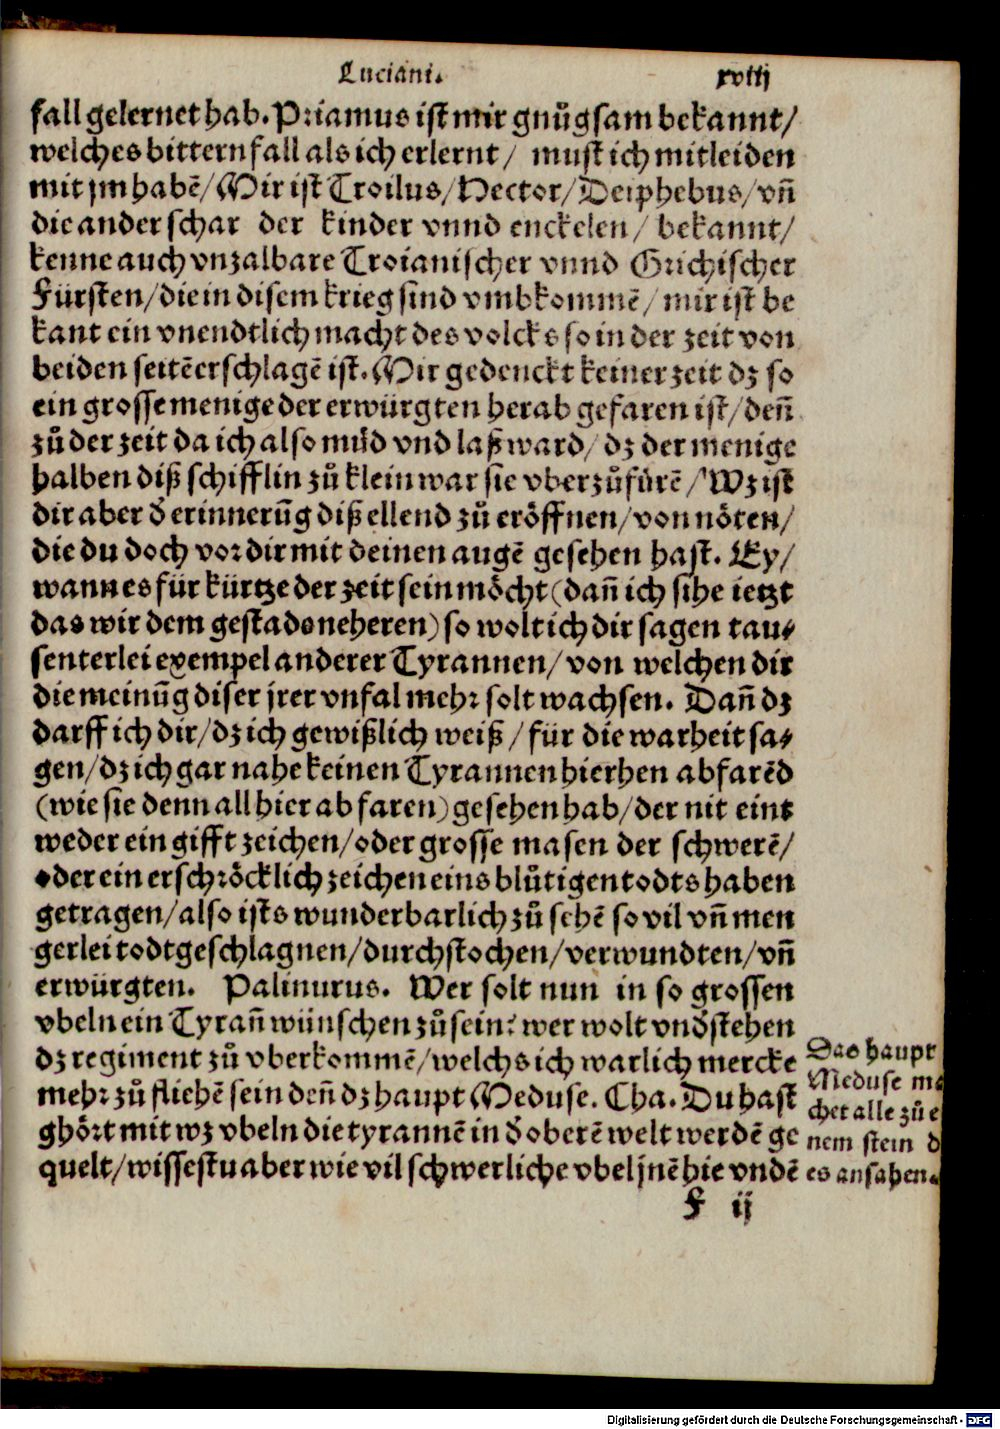 Luciani. xviij
fall gelernet hab. Priamus ist mir gnůgsam bekannt/
welches bittern fall als ich erlernt/ must ich mitleiden
mit jm habē/ Mir ist Troilus/ Hector/ Deiphebus/ vñ
die ander schar der kinder vnnd enckelen/ bekannt/
kenne auch vnzalbare Troianischer vnnd Grichischer
Fürsten/ die in disem krieg sind vmbkommē/ mir ist be
kant ein vnendtlich macht des volcks so in der zeit von
beiden seitē erschlagē ist. Mir gedenckt keiner zeit dz so
ein grosse menige der erwürgten herab gefaren ist/ deñ
zů der zeit da ich also můd vnd laß ward/ dz der menige
halben diß schifflin zů klein war sie vber zůfůrē/ Wz ist
dir aber d̕ erinnerūg diß ellend zů eröffnen/ von nöten/
die du doch vor dir mit deinen augē gesehen hast. Ey/
wann es für kürtze der zeit sein möcht (dañ ich sihe ietzt
das wir dem gestads neheren) so wolt ich dir sagen tau-
senterlei exempel anderer Tyrannen/ von welchen dir
die meinūg diser jrer vnfal mehr solt wachsen. Dañ dz
darff ich dir/ dz ich gewißlich weiß/ für die warheit sa-
gen/ dz ich gar nahe keinen Tyrannen hierhen abfarēd
(wie sie denn all hier ab faren) gesehen hab/ der nit eint
weder ein gifft zeichen/ oder grosse masen der schwerē/
oder ein erschröcklich zeichen eins blůtigen todts haben
getragen/ also ists wunderbarlich zů sehē so vil vñ men
gerlei todtgeschlagnen/ durchstochen/ verwundten/ vñ
erwürgten. Palinurus. Wer solt nun in so grossen
vbeln ein Tyrañ wünschen zů sein? wer wolt vnd̕stehen
dz regiment zů vberkommē/ welchs ich warlich mercke
mehr zů fliehē sein deñ dz haupt Meduse. Cha. Du hast
ghört mit wz vbeln die tyrannē in d̕ oberē welt werdē ge
quelt/ wissestu aber wie vil schwerliche vbel jnē hie vndē
Das haupt
Meduse ma
chet alle zů e
nem stein d
es ansahen.
F ij
Digitalisierung gefördert durch die Deutsche Forschungsgemeinschaft - DFG